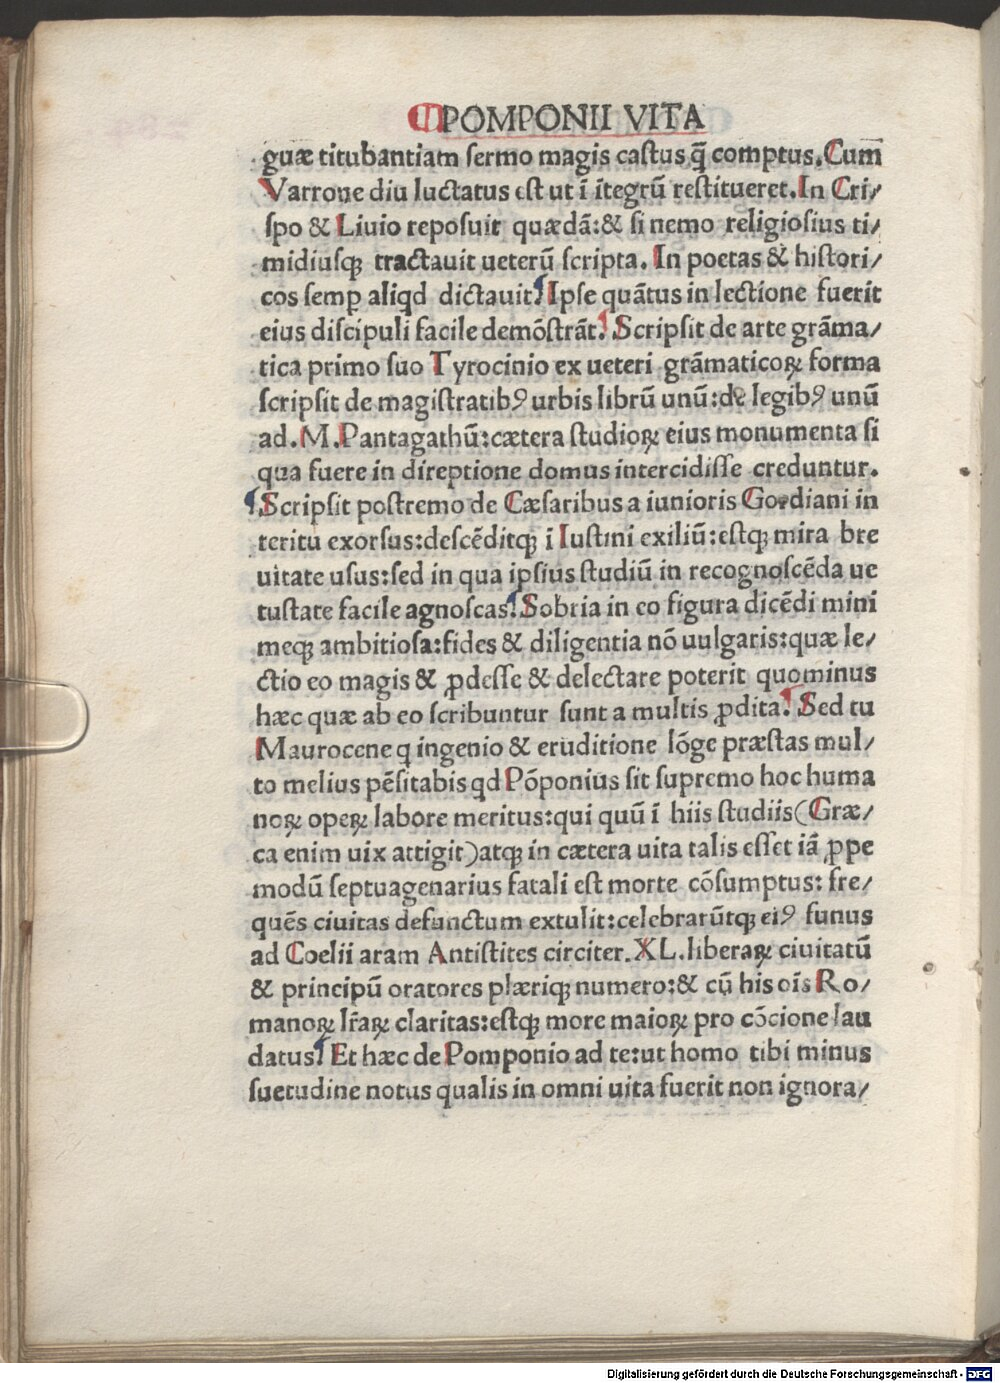 POMPONII VITA
guæ titubantiam sermo magis castus q̄ comptus. Cum
Varrone diu luctatus est ut ī ītegrū restitueret. In Cri/
spo & Liuio reposuit quædā: & si nemo religiosius ti/
midiusqꝫ tractauit ueterū scripta. In poetas & histori/
cos semꝑ aliqd dictauit. Ipse quātus in lectione fuerit
eius discipuli facile demōstrāt. Scripsit de arte grāma/
tica primo suo Tyrocinio ex ueteri grāmaticoꝝ forma
scripsit de magistratibꝰ urbis librū unū: de legibꝰ unū
ad. M. Pantagathū: cætera studioꝝ eius monumenta si
qua fuere in direptione domus intercidisse creduntur.
Scripsit postremo de Cæsaribus a iunioris Gordiani in
teritu exorsus: descēditqꝫ ī Iustini exiliū: estqꝫ mira bre
uitate usus: sed in qua ipsius studiū in recognoscēda ue
tustate facile agnoscas. Sobria in eo figura dicēdi mini
meqꝫ ambitiosa: fides & diligentia nō uulgaris: quæ le/
ctio eo magis & ꝓdesse & delectare poterit quominus
hæc quæ ab eo scribuntur sunt a multis ꝓdita. Sed tu
Maurocene q ingenio & eruditione lōge præstas mul/
to melius pēsitabis qd Pōponius sit supremo hoc huma
noꝝ opeꝝ labore meritus: qui quū ī hiis studiis (Græ/
ca enim uix attigit) atqꝫ in cætera uita talis esset iā ꝓpe
modū septuagenarius fatali est morte cōsumptus: fre/
quēs ciuitas defunctum extulit: celebrarūtqꝫ eiꝰ funus
ad Coelii aram Antistites circiter. XL. liberaꝝ ciuitatū
& principū oratores plæriqꝫ numero: & cū his oīs Ro/
manoꝝ lr̄aꝝ claritas: estqꝫ more maioꝝ pro cōcione lau
datus. Et hæc de Pomponio ad te: ut homo tibi minus
suetudine notus qualis in omni uita fuerit non ignora/
Digitalisierung gefördert durch die Deutsche Forschungsgemeinschaft - DFG